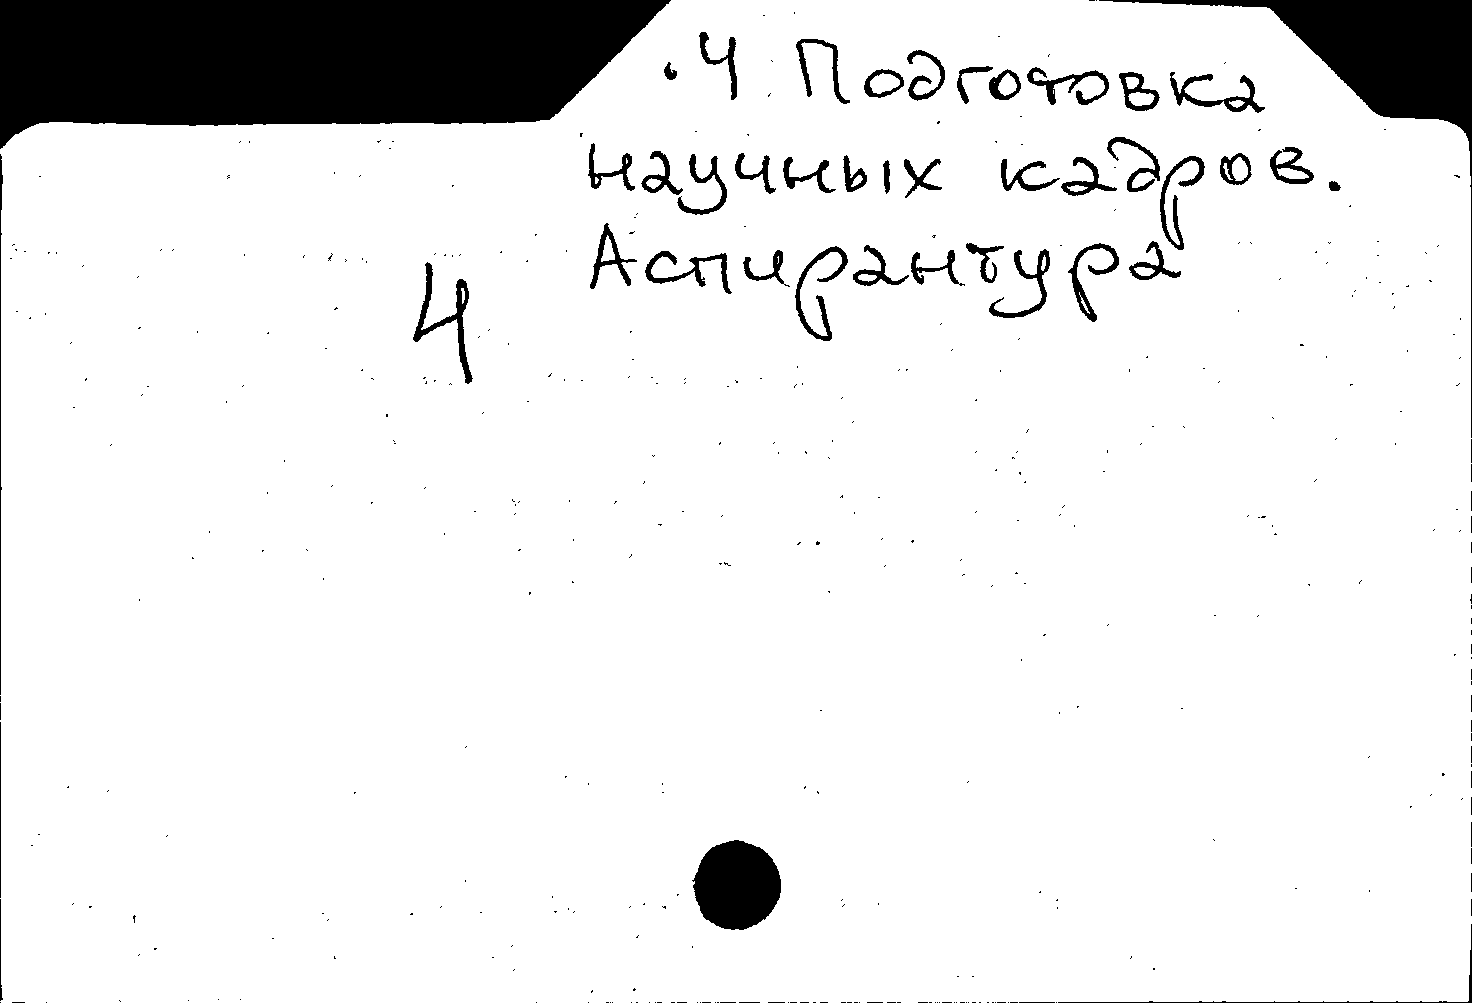 .4 Подготовка
научных кадров.
Аспирантура
4